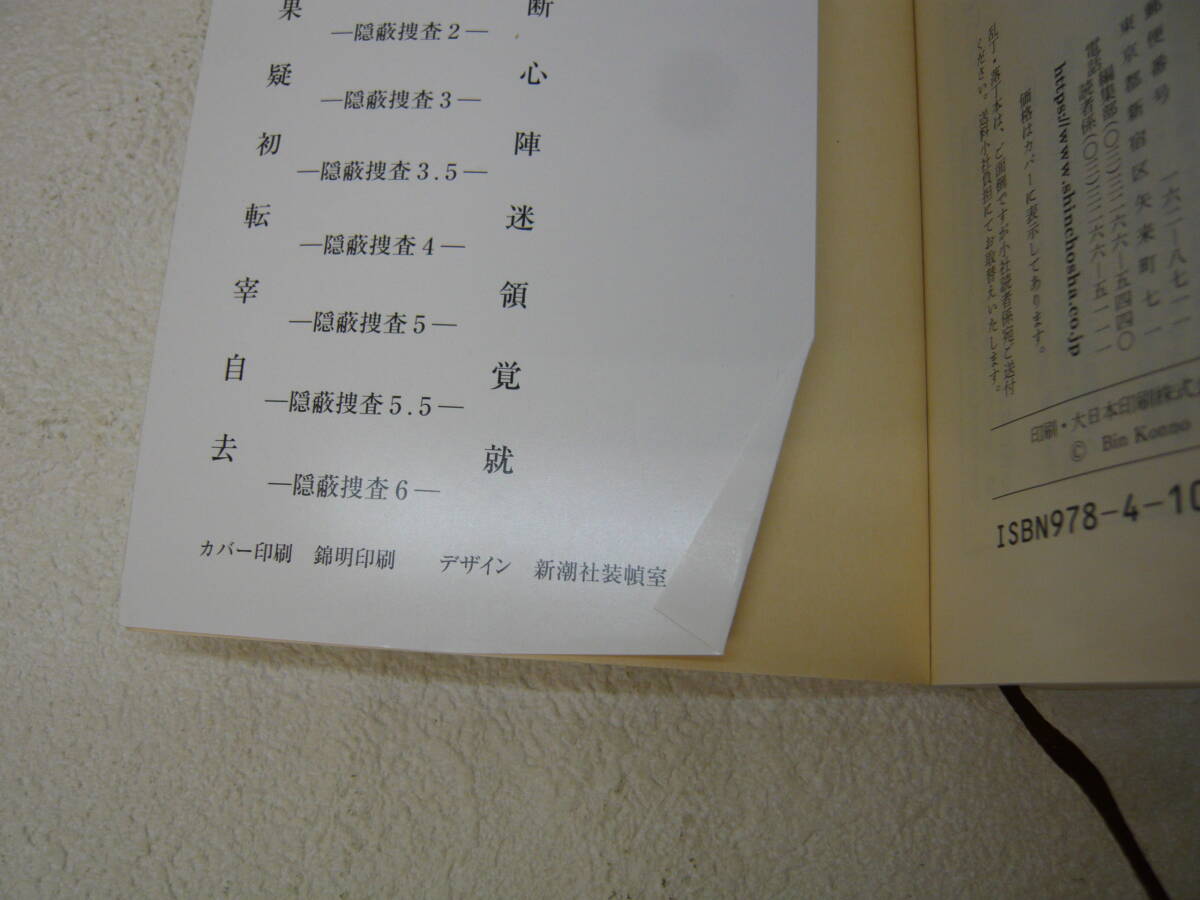 果 断
―隠蔽捜査2―
疑 心
―隠蔽捜査3―
初 陣
―隠蔽捜査3.5―
転 迷
―隠蔽捜査4―
宰 領
―隠蔽捜査5―
自 覚
―隠蔽捜査5.5―
去 就
―隠蔽捜査6―
カバー印刷 錦明印刷 デザイン 新潮社装幀室
郵便番号 一六二―八七一一
東京都新宿区矢来町七一
編集部(〇三)三二六六―五四四〇
電話 読者係(〇三)三二六六―五一一一
https://www.shinchosha.co.jp
価格はカバーに表示してあります。
乱丁・落丁本は、ご面倒ですが小社読者係宛ご送付
ください。送料小社負担にてお取替えいたします。
印刷・大日本印刷株式
© Bin Konno
ISBN978-4-10